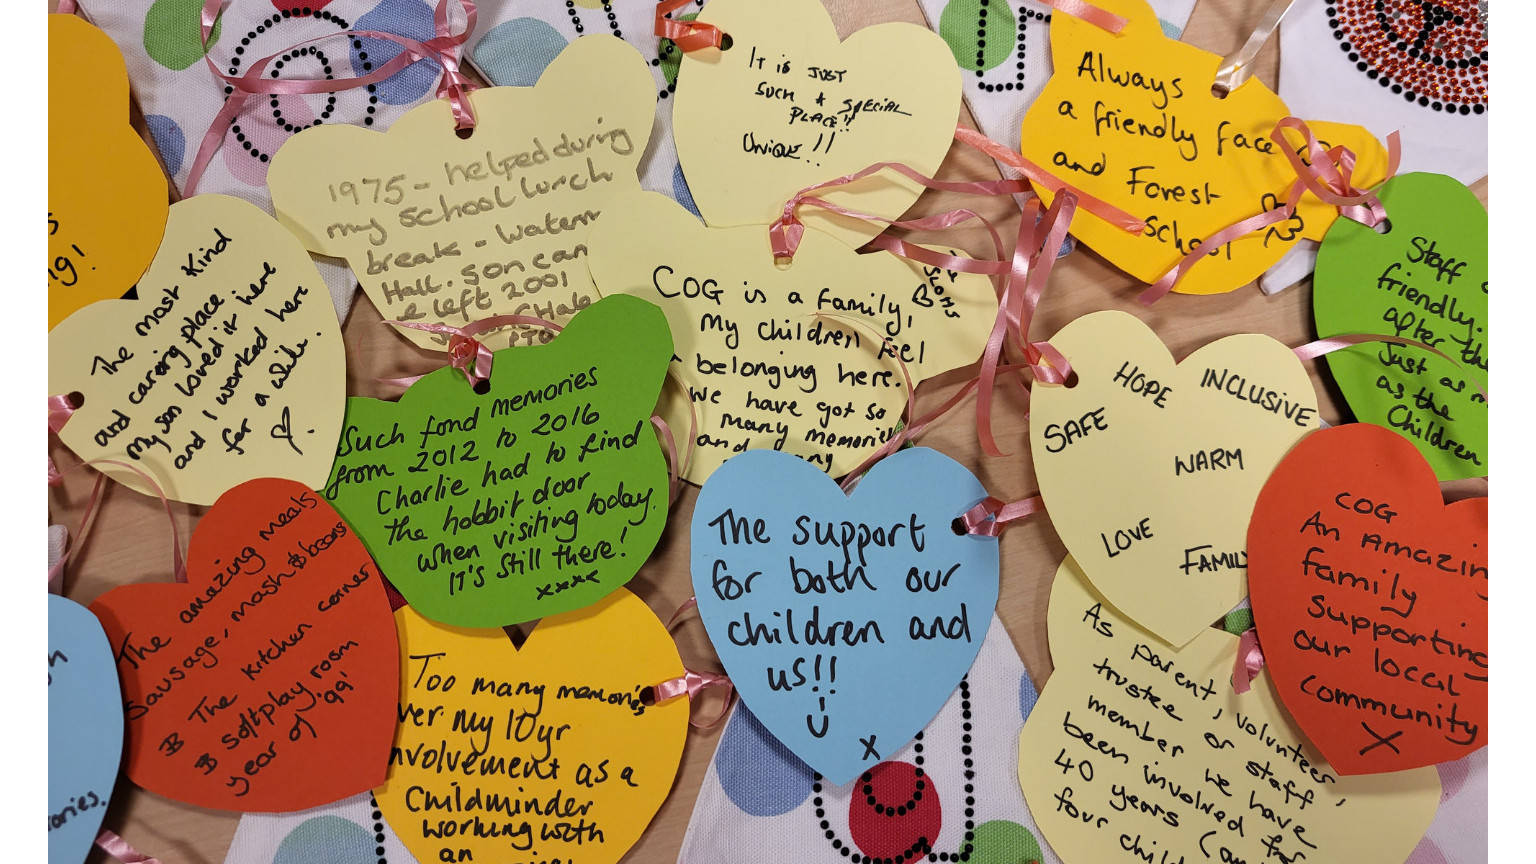 ng!
The most kind
and caring place.
my son loved it here
and I worked here
for a while.
1975 - helped during
my school lunch
break - Waterm
Hall. Son came
left 2001
IT is JUST
SUCH A SPECIAL
PLACE!!
UNIQUE!!
Always
a friendly face
and Forest
School
Staff
friendly.
after the
Just as m
as the
Children
COG is a family,
My children feel
belonging here.
We have got so
many memories
and many
Such fond memories
from 2012 to 2016
Charlie had to find
the hobbit door
when visiting today.
It's still there!
xxxx
HOPE
INCLUSIVE
SAFE
WARM
LOVE
FAMIL
The amazing meals
Sausage, mash & beans
The kitchen corner
& softplay room
year of '99'
The support
for both our
children and
us!!
x
COG
An Amazing
family
Supporting
our local
community
X
Too many memories
ver my 10yr
nvolvement as a
Childminder
working with
an
As parent, volunteer,
trustee or staff
member we have
been involved for
40 years (an
four child
ories.